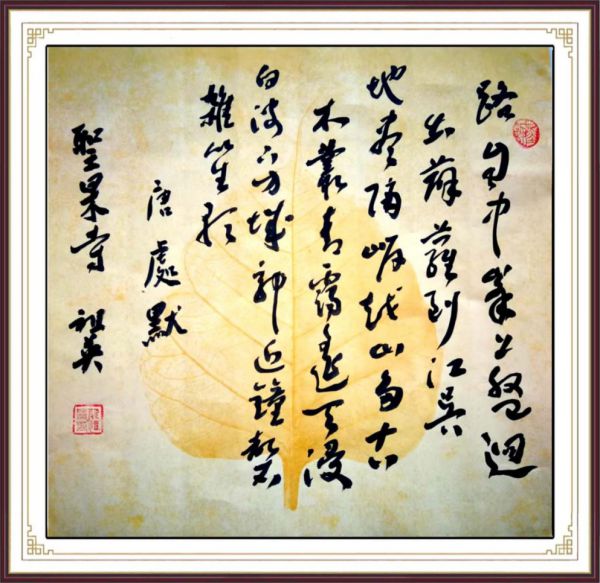 路自中峯上盤迴
出薜蘿到江吳
地盡隔岸越山多古
木叢青靄遙天浸
白波下方城郭近鐘磬
雜笙歌
唐處默
聖果寺 祖英